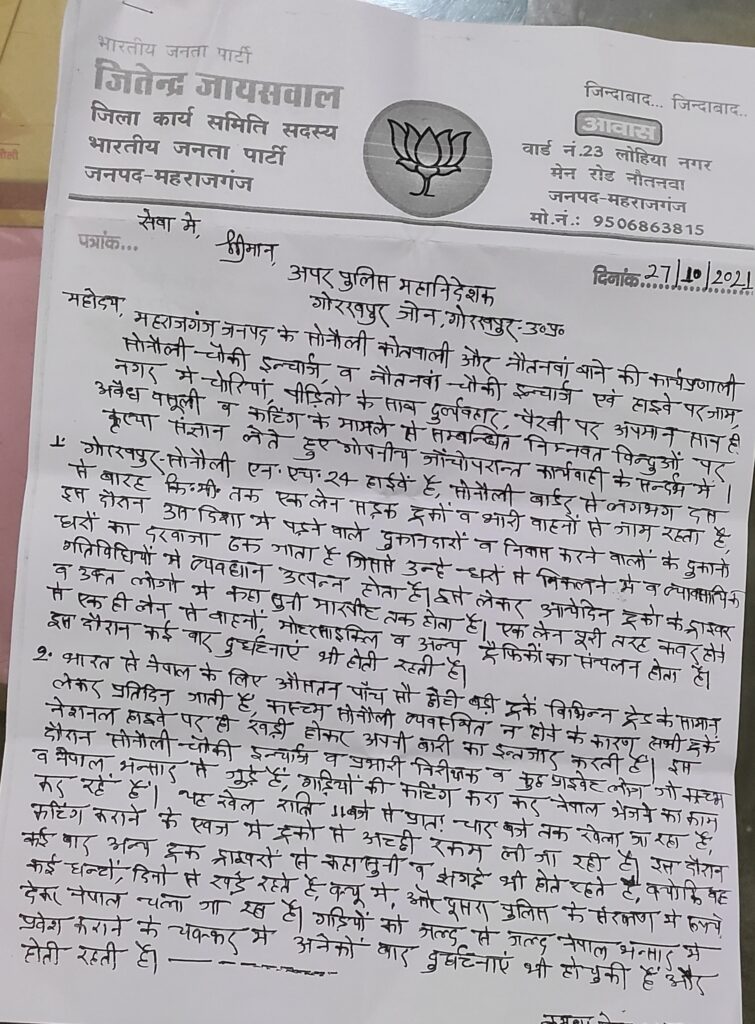 भारतीय जनता पार्टी
जितेन्द्र जायसवाल
जिला कार्य समिति सदस्य
भारतीय जनता पार्टी
जनपद-महराजगंज
जिन्दाबाद... जिन्दाबाद..
आवास
वार्ड नं.23 लोहिया नगर
मेन रोड नौतनवा
जनपद-महराजगंज
मो.नं.: 9506863815
सेवा मे,
पत्रांक...
श्रीमान,
दिनांक 27/10/2021
अपर पुलिस महानिदेशक
गोरखपुर जोन, गोरखपुर-उ०प्र०
महोदय,
महराजगंज जनपद के सोनौली कोतवाली और नौतनवां थाने की कार्यप्रणाली
सोनौली-चौकी इन्चार्ज, व नौतनवां-चौकी इन्चार्ज एवं हाइवे पर जाम,
नगर मे चोरियां, पीड़ितो के साथ दुर्व्यवहार, पैरवी पर अपमान साथ ही
अवैध वसूली व कटिंग के मामले से सम्बन्धित निम्नवत बिन्दुओं पर
कृपया संज्ञान लेते हुए गोपनीय जाँचोपरान्त कार्यवाही के सन्दर्भ मे।
1. गोरखपुर-सोनौली एन.एच.24 हाईवे है, सोनौली बार्डर से लगभग दस
से बारह कि.मी. तक एक लेन सड़क ट्रकों व भारी वाहनों से जाम रहता है,
इस दौरान उस दिशा मे पड़ने वाले दुकानदारों व निवास करने वालों के दुकानो
घरों का दरवाजा ढक जाता है जिससे उन्हे घरों से निकलने मे व व्यावसायिक
गतिविधियों मे व्यवधान उत्पन्न होता है। इसे लेकर आयेदिन ट्रको के ड्राइवर
व उक्त लोगो मे कहा सुनी मारपीट तक होता है। एक लेन पूरी तरह कवर होने
से एक ही लेन से वाहनों, मोटरसाइकिल व अन्य ट्रैफिकों का संचलन होता है।
इस दौरान कई बार दुर्घटनाएं भी होती रहती है।
2. भारत से नेपाल के लिए औसतन पाँच सौ छोटी बड़ी ट्रकें विभिन्न ट्रेड के सामान
लेकर प्रतिदिन जाती है, कास्टम सोनौली व्यवस्थित न होने के कारण सभी ट्रकें
नेशनल हाइवे पर ही खड़ी होकर अपनी बारी का इन्तजार करती है। इस
दौरान सोनौली-चौकी इन्चार्ज व प्रभारी निरीक्षक व कुछ प्राइवेट लोग जो कस्टम
व नेपाल भन्सार से जुड़े हैं, गाड़ियों की कटिंग करा कर नेपाल भेजने का काम
कर रहें हैं। यह खेल रात्रि 11 बजे से प्रातः चार बजे तक खेला जा रहा है,
कटिंग कराने के एवज मे ट्रको से अच्छी रकम ली जा रही है। इस दौरान
कई बार अन्य ट्रक ड्राइवरों से कहासुनी व झगड़े भी होते रहते है, क्योंकि वह
कई घन्टों, दिनो से खड़े रहते है, क्यू मे, और दूसरा पुलिस के संरक्षण मे रूपये
देकर नेपाल चला जा रहा है। गाड़ियों को जल्द से जल्द नेपाल भन्सार मे
प्रवेश कराने के चक्कर मे अनेकों बार दुर्घटनाएं भी हो चुकी हैं और
होती रहती है।